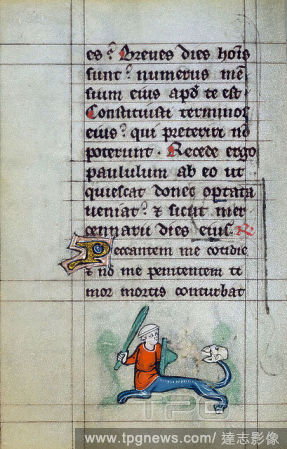 es? Breues dies hoīs
sunt? numerus mē
sium eius apđ te est.
Constituisti terminos
eius? qui preterire nō
poterunt. Recede ergo
paululum ab eo ut
quiescat donec optata
ueniat? ⁊ sicut mer
cennarii dies eius. R̸
Peccantem me cotidie
⁊ nō me penitentem ti
mor mortis conturbat
TPG
www.tpgnews.com/ 達志影像